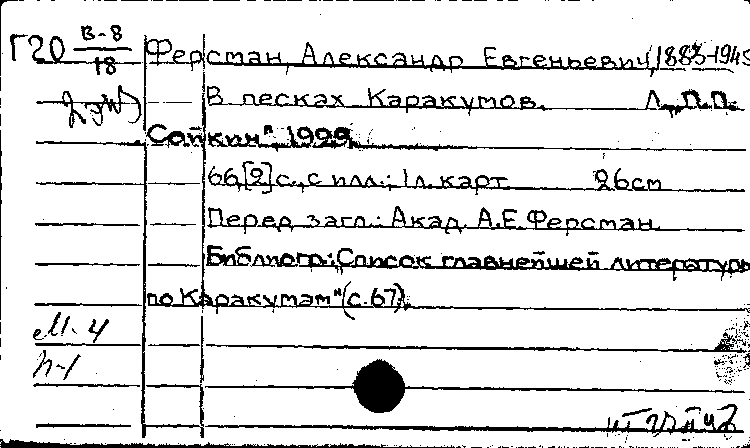 Г20 В-8 Ферсман, Александр Евгеньевич, 1883-1945
18
В песках Каракумов. Л., П.П.
Сойкин", 1929.
66,[2]с., с илл.; 1л. карт. 26см
Перед загл.: Акад. А.Е.Ферсман.
Библиогр.: "Список главнейшей литературы
по Каракумам" (с.67).
М-4
п-1